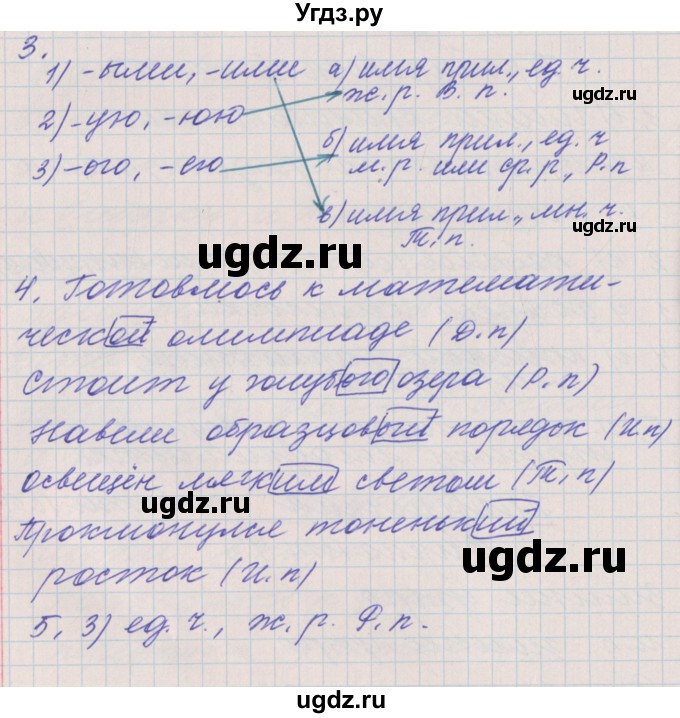 Угдз.ру
3.
1) -ыми, -ими а) имя прил., ед. ч.
ж. р. В. п.
2) -ую, -юю
б) имя прил., ед. ч
3) -ого, -его м. р. или ср. р., Р. п
в) имя прил., мн. ч.
Т. п.
4. Готовлюсь к математи-
ческой олимпиаде (Д. п)
Стоит у голубого озера (Р. п)
Навели образцовый порядок (И. п)
освещён мягким светом (Т. п)
Проклюнулся тоненький
росток (И. п)
5. 3) ед. ч., ж. р. Р. п.
ugdz.ru
ugdz.ru
ugdz.ru
ugdz.ru
ugdz.ru
ugdz.ru
ugdz.ru
ugdz.ru